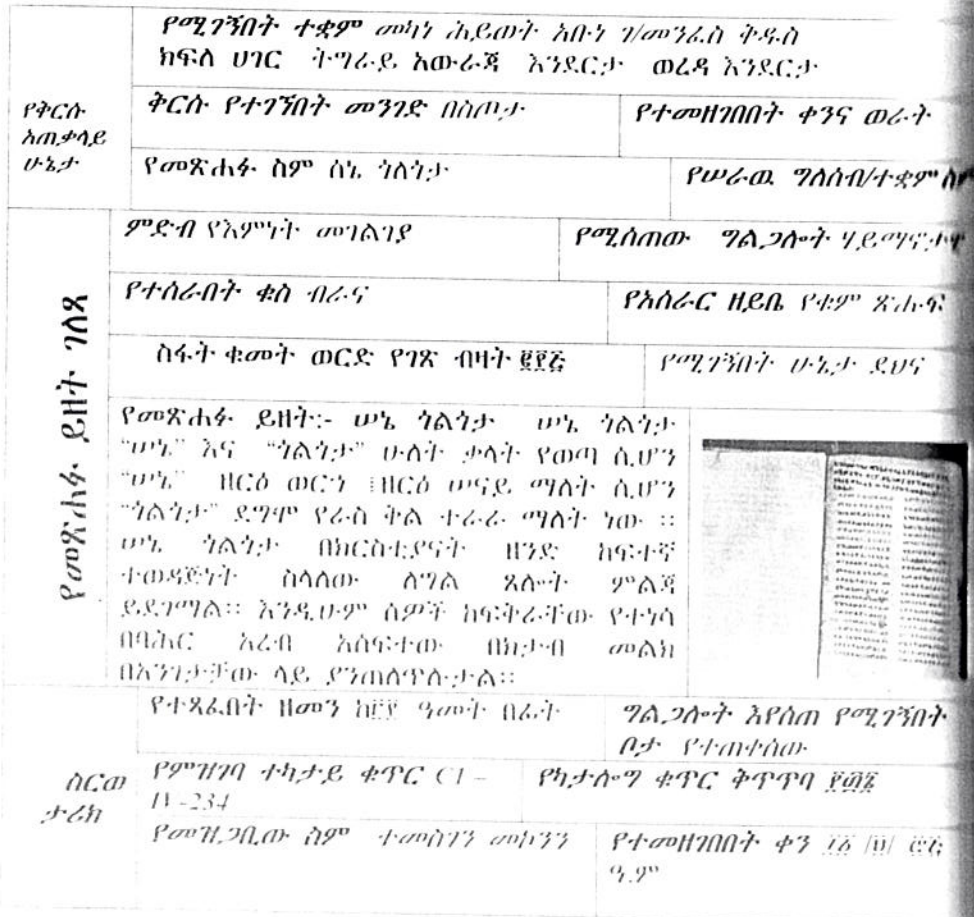 የሚገኝበት ተቋም መካነ ሕይወት አቡነ ገ/መንፈስ ቅዱስ
ክፍለ ሀገር ትግራይ አውራጃ እንደርታ ወረዳ እንደርታ
የቅርሱ
አጠቃላይ
ሁኔታ
ቅርሱ የተገኘበት መንገድ በስጦታ
የተመዘገበበት ቀንና ወራት
የመጽሐፉ ስም ሰኔ ጎለጎታ
የሠራዉ ግለሰብ/ተቋም ስም
የመጽሐፉ ይዘት ገለጻ
ምድብ የእምነት መገልገያ
የሚሰጠው ግልጋሎት ሃይማኖታዊ
የተሰራበት ቁስ ብራና
የአሰራር ዘይቤ የቁም ጽሑፍ
ስፋት ቁመት ወርድ የገጽ ብዛት
የሚገኝበት ሁኔታ ደህና
የመጽሐፉ ይዘት:- ሠኔ ጎልጎታ ሠኔ ጎልጎታ
"ሠኔ" እና "ጎልጎታ" ሁለት ቃላት የወጣ ሲሆን
"ሠኔ" ዘርዕ ወርኅ ፤ዘርዕ ሠናይ ማለት ሲሆን
"ጎልጎታ" ደግሞ የራስ ቅል ተራራ ማለት ነው ።
ሠኔ ጎልጎታ በክርስቲያናት ዘንድ ከፍተኛ
ተወዳጅነት ስላለው ለግል ጸሎት ምልጃ
ይደገማል። እንዲሁም ሰዎች ከፍቅራቸው የተነሳ
በባሕር አረብ አሰፍተው በክታብ መልክ
በአንገታቸው ላይ ያንጠለጥሉታል።
የተጻፈበት ዘመን ዓመት በፊት
ግልጋሎት እየሰጠ የሚገኝበት
ቦታ የተጠቀሰው
ስርወ
ታሪክ
የምዝገባ ተካታይ ቁጥር C1 –
IV-234
የካታሎግ ቁጥር ቅጥጥባ
የመዝጋቢው ስም ተመስገን መኮንን
የተመዘገበበት ቀን
ዓ.ም